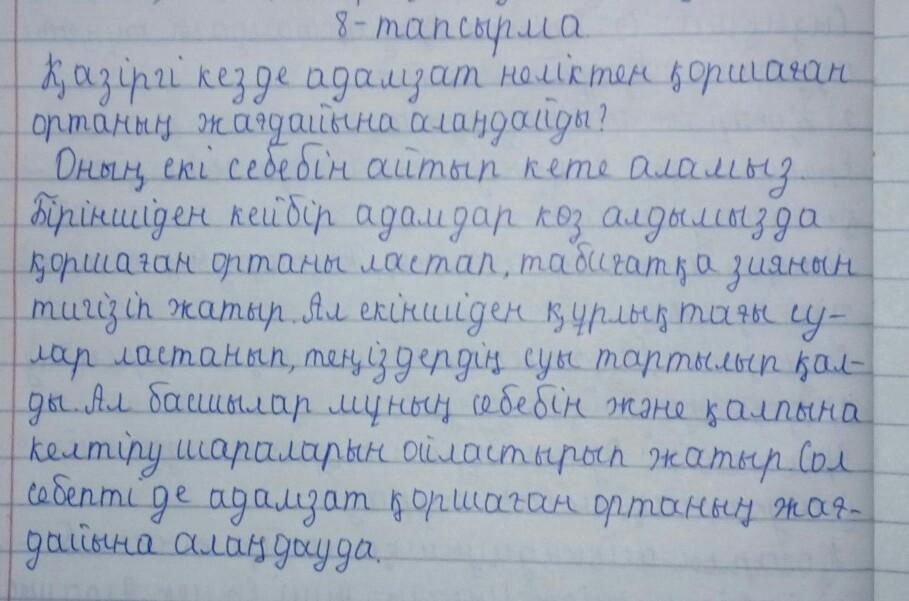 8-тапсырма
Қазіргі кезде адамзат неліктен қоршаған
ортаның жағдайына алаңдайды?
Оның екі себебін айтып кете аламыз.
Біріншіден кейбір адамдар көз алдымызда
қоршаған ортаны ластап, табиғатқа зиянын
тигізіп жатыр. Ал екіншіден құрлықтағы су-
лар ластанып, теңіздердің суы тартылып қал-
ды. Ал басшылар мұның себебін және қалпына
келтіру шараларын ойластырып жатыр. Сол
себепті де адамзат қоршаған ортаның жағ-
дайына алаңдауда.